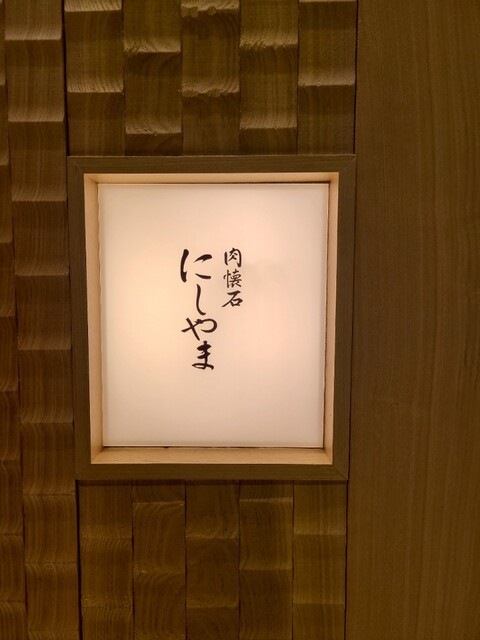 肉懐石
にしやま